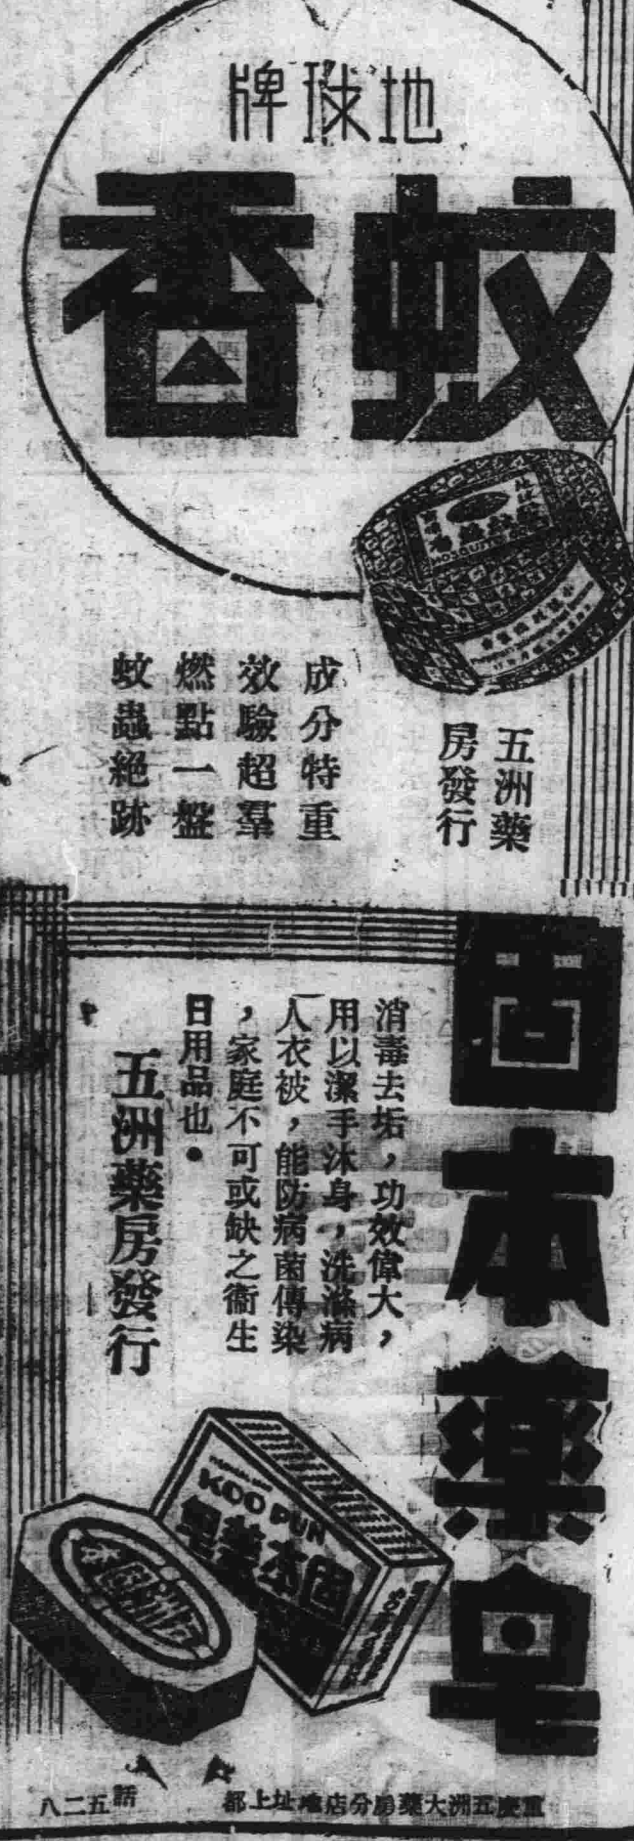 地球牌
蚊香
五洲藥
房發行
成分特重
效驗超羣
燃點一盤
蚊蟲絕跡
固本藥皂
消毒去垢，功效偉大，
用以潔手沐身，洗滌病
人衣被，能防病菌傳染
，家庭不可或缺之衞生
日用品也。
五洲藥房發行
KOO PUN
固本藥皂
重慶五洲大藥房分店
話五二八